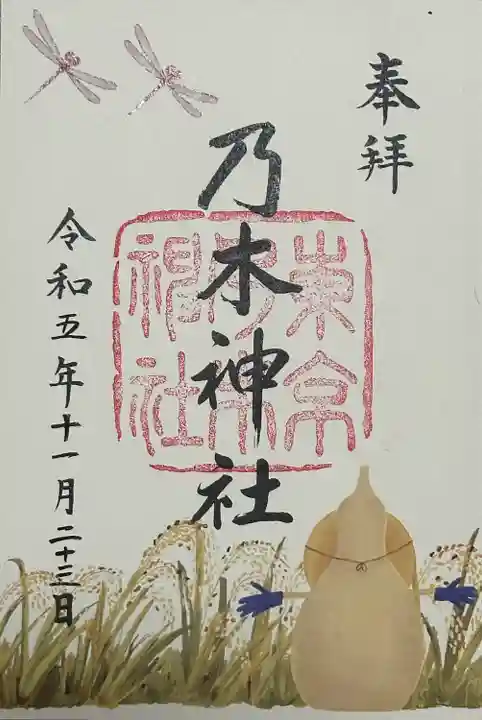 奉拝
乃木神社
東京
乃木
神社
令和五年十一月二十三日